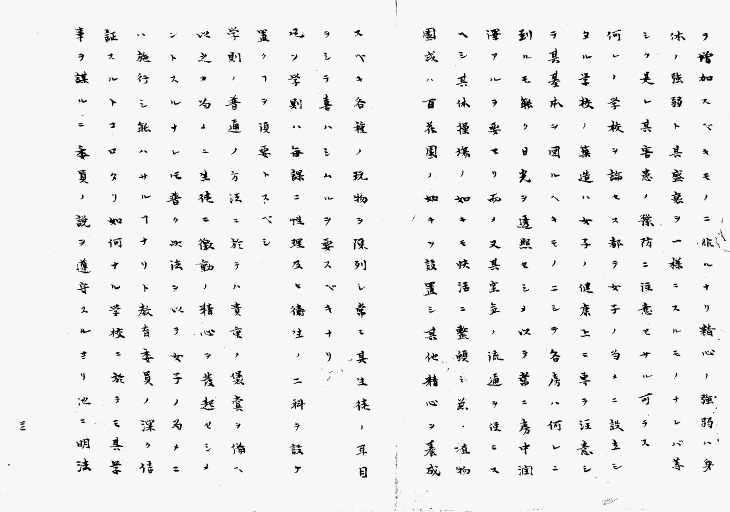 ヲ増加スベキモノニ非ルナリ精心ノ強弱ハ身
体ノ強弱ト其盛衰ヲ一様ニスルモノナレバ等
シク是レ其害悪ノ豫防ニ注意セサル可ラス
何レノ学校ヲ論セス都テ女子ノ当メニ設立シ
タル学校ノ築造ハ女子ノ健康上ニ専ラ注意シ
テ其基本ヲ図ルヘキモノニシテ各房ハ何レニ
到ルモ能ク日光ヲ透照セシメ以テ常ニ房中潤
澤アルヲ要セリ而ノ又其室気ノ流通ヲ佳ニス
ヘシ其体操場ノ如キモ快活ニ整頓シ並植物
園或ハ百花園ノ如キヲ設置シ其他精心ヲ養成
スベキ各種ノ玩物ヲ陳列シ常ニ其生徒ノ耳目
ヲシテ喜ハシムルヲ要スベキナリ
凡ソ学則ハ毎課ニ性理及ヒ衛生ノ二科ヲ設ケ
置クヿヲ須要トスベシ
学則ノ普通ノ方法ニ於テハ貴重ノ褒賞ヲ備ヘ
以之カ為メニ生徒ニ激動ノ精心ヲ発起セシメ
ントスルナレ𪜈善ク此法ヲ以テ女子ノ為メニ
ハ施行シ能ハサルヿナリト教育委員ノ深ク信
証スルトコロタリ如何ナル学校ニ於テモ其挙
事ヲ謀ルニ委員ノ説ヲ遵守スルヨリ他ニ明法
三